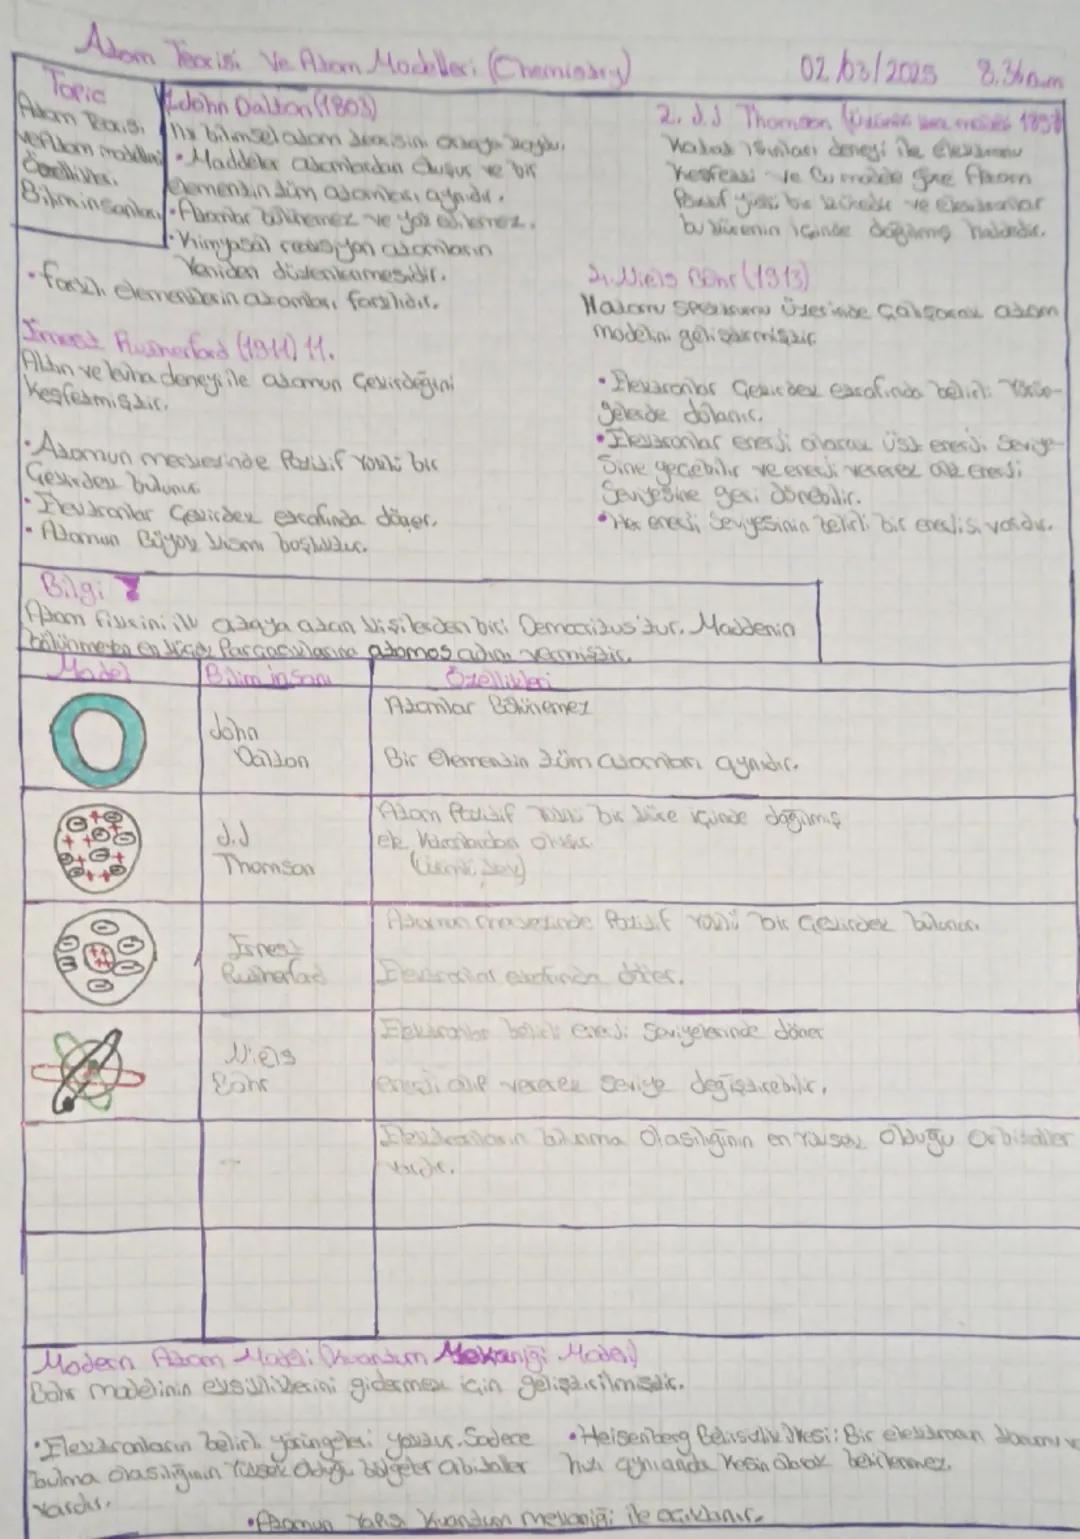 Atom Teorisi Ve Atom Modelleri (Chemistry)
02/03/2025 8.36am
Topic
Atom Teorisi
ve Atom modelleri
Özellikleri
Bilim insanları
1. John Dalton (1803)
İlk bilimsel atom teorisini ortaya koydu.
• Maddeler atomlardan oluşur ve bir
elementin tüm atomları aynıdır.
• Atomlar bölünemez ve yok edilemez.
• Kimyasal reaksiyon atomların
Yeniden düzenlenmesidir.
• farklı elementlerin atomları farklıdır.
2. J.J Thomson (Üzümlü kek modeli
Katot ışınları deneyi ile elektronu
Keşfetti ve Bu modele göre Atom
Pozitif yüklü bir küredir ve Elektronlar
bu kürenin içinde dağılmış haldedir.
Ernest Rutherford (1911) 11.
Altın levha deneyi ile atomun Çekirdeğini
Keşfetmiştir.
• Atomun merkezinde Pozitif Yüklü bir
Çekirdek bulunur
• Elektronlar Çekirdek etrafında döner.
• Atomun Büyük kısmı boşluktur.
Niels Bohr (1913)
Hatom spektrumu Üzerinde Çalışarak atom
modelini geliştirmiştir
• Elektronlar Çekirdek etrafında belirli Yörün-
gelerde dolanır.
• Elektronlar enerji alarak üst enerji Seviye-
Sine geçebilir ve enerji vererek alt Enerji
Seviyesine geri dönebilir.
• Her enerji Seviyesinin belirli bir enerjisi vardır.
Bilgi
Atom fikrini ilk ortaya atan kişilerden biri Democritus'tur. Maddenin
bölünmeyen en küçük Parçacıklarına atomos adını vermiştir.
Model Bilim insanı Özellikleri
John
Dalton
Atomlar Bölünemez
Bir elementin tüm atomları aynıdır.
J.J
Thomson
Atom Pozitif Yüklü bir küre içinde dağılmış
oluşur.
(Üzümlü kek)
Ernest
Rutherford
Atomun merkezinde Pozitif Yüklü bir Çekirdek bulunur.
Elektronlar etrafında döner.
Niels
Bohr
Elektronlar belirli enerji Seviyelerinde döner
enerji alıp vererek Seviye değiştirebilir.
Elektronların bulunma Olasılığının en Yüksek Olduğu Orbitaller
vardır.
Modern Atom Modeli (Kuantum Mekaniği Modeli)
Bohr modelinin eksikliklerini gidermek için geliştirilmiştir.
• Elektronların belirli yörüngeleri yoktur. Sadece
bulma olasılığının Yüksek Olduğu bölgeler orbitaller
vardır.
• Heisenberg Belirsizlik İlkesi: Bir elektronun konumu ve
hızı aynı anda Kesin olarak belirlenmez.
• Atomun Yapısı Kuantum mekaniği ile açıklanır.